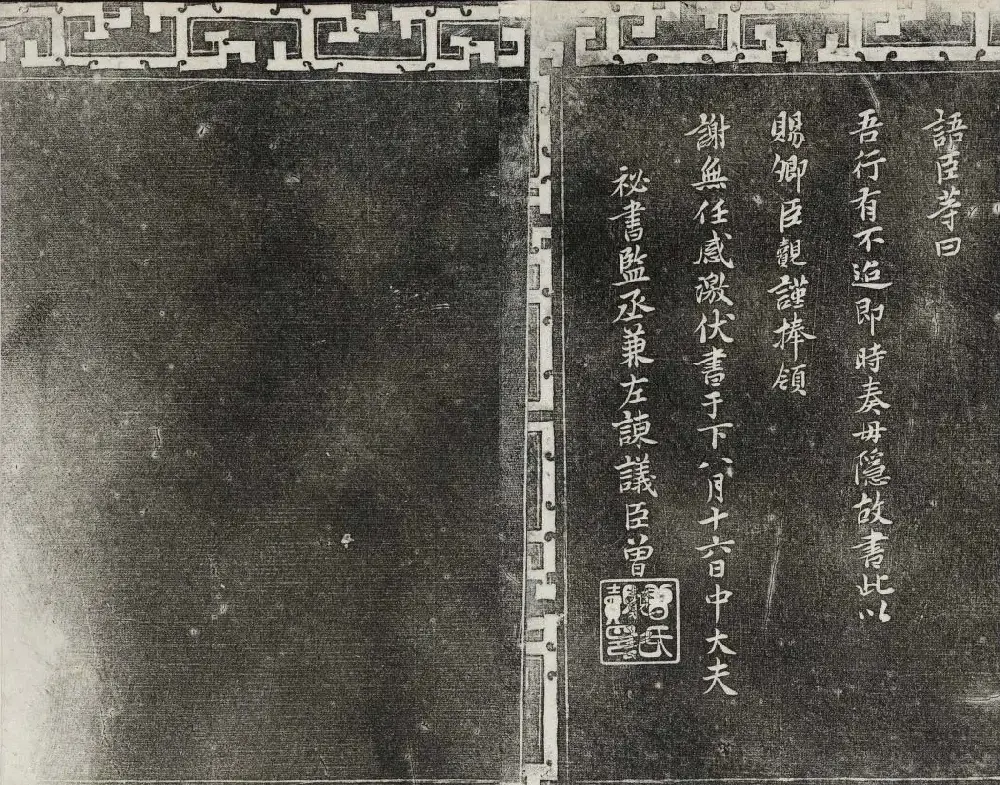 語臣等曰
吾行有不迨即時奏毋隱故書此以
賜卿臣覿謹捧領
謝無任感激伏書于下八月十六日中大夫
祕書監丞兼左諫議臣曾